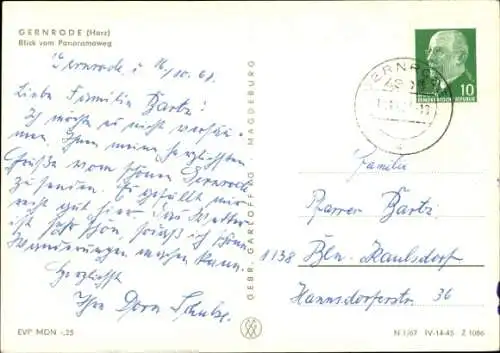 GERNRODE (Harz)
Blick vom Panoramaweg
Gernrode, 16/10. 67.
Liebe Familie Bartz!
Ich möchte es nicht versäu-
men, Ihnen meine herzlichsten
Grüße vom schönen Gernrode
zu senden. Es gefällt mir
recht gut hier. Das Wetter
ist sehr schön, sodaß ich schöne
Wanderungen machen kann.
Herzlichst
Ihre Dora Schulze.
EVP MDN -,25
GEBR. GARLOFF KG MAGDEBURG
GERNRODE
10
DEUTSCHE DEMOKRATISCHE REPUBLIK
Familie
Pfarrer Bartz
1138 Bln. Kaulsdorf
Hannsdorferstr. 36
N 1/67 IV-14-45 Z 1086